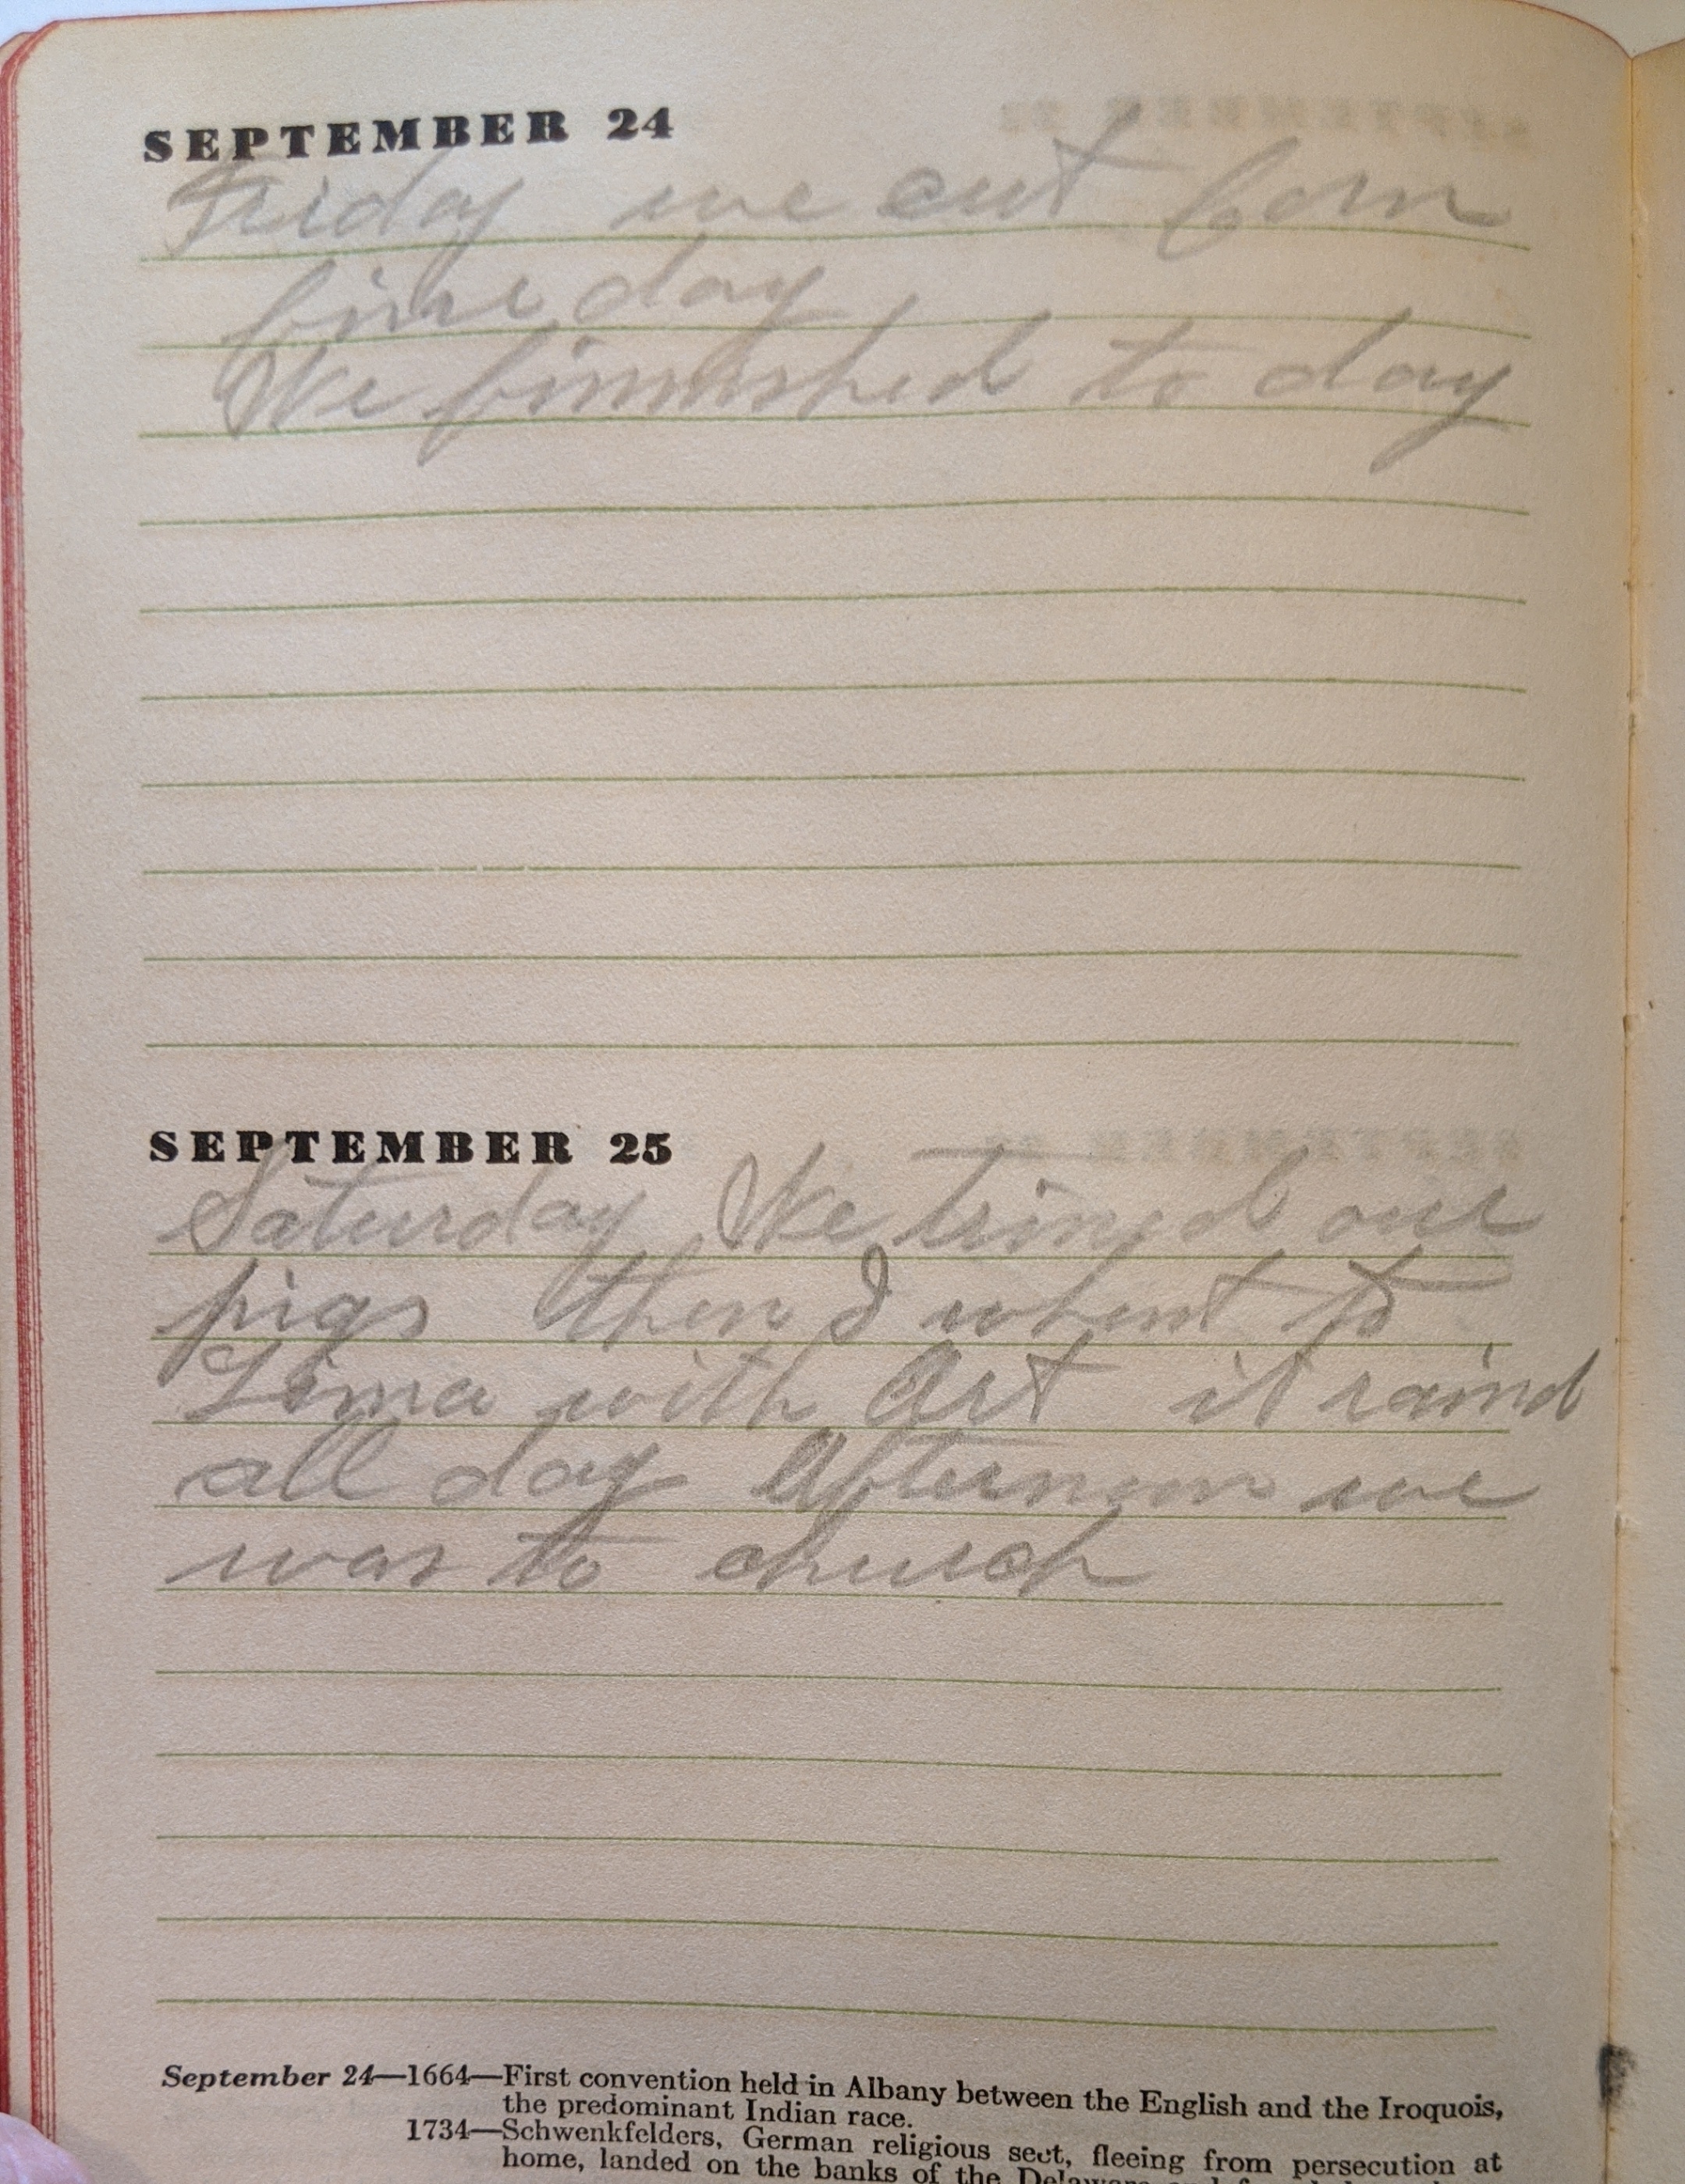 SEPTEMBER 24
Friday we cut Corn
fine day
We finnished to day
SEPTEMBER 25
Saturday We trimed our
pigs then I whent to
Lima with Art it raind
all day Afternoon we
was to church
September 24—1664—First convention held in Albany between the English and the Iroquois,
the predominant Indian race.
1734—Schwenkfelders, German religious sect, fleeing from persecution at
home, landed on the banks of the Delaware and